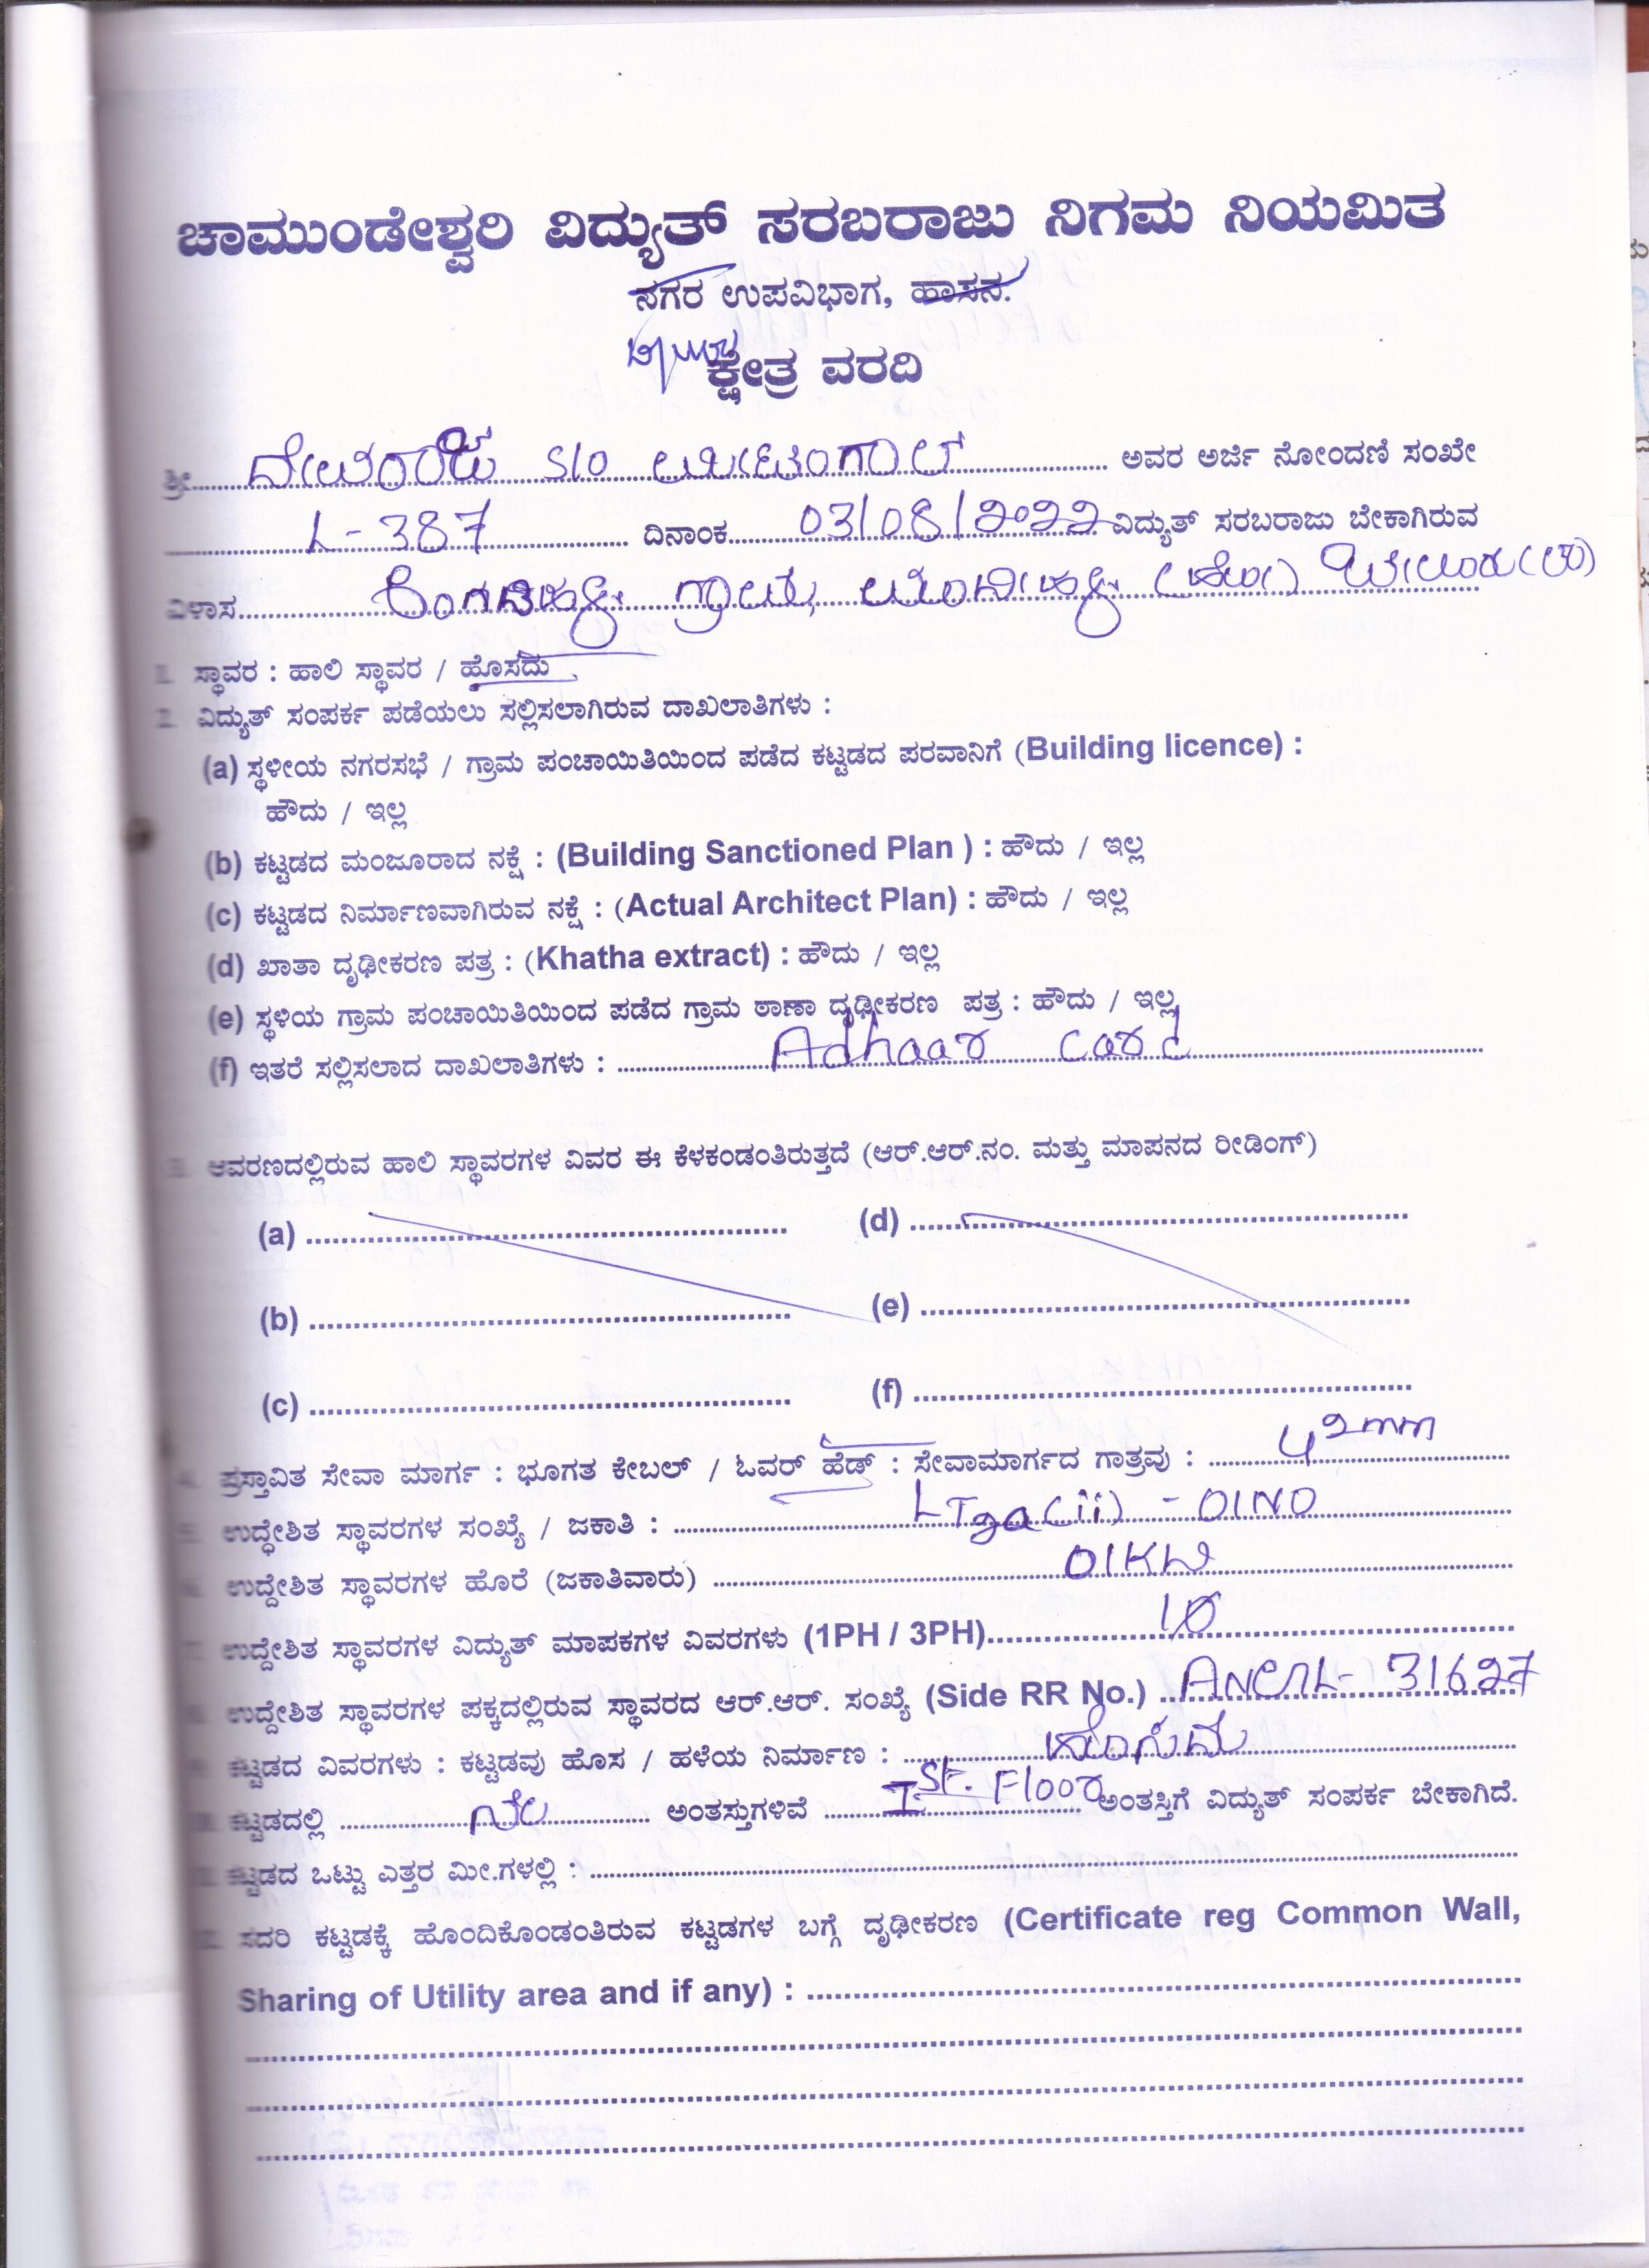 ಚಾಮುಂಡೇಶ್ವರಿ ವಿದ್ಯುತ್ ಸರಬರಾಜು ನಿಗಮ ನಿಯಮಿತ
ನಗರ ಉಪವಿಭಾಗ, ಹಾಸನ.
ಕ್ಷೇತ್ರ ವರದಿ
ಶ್ರೀ ದೇವರಾಜು S/o ಅವರ ಅರ್ಜಿ ನೋಂದಣಿ ಸಂಖೇ
L-387 ದಿನಾಂಕ 03/08/2022 ವಿದ್ಯುತ್ ಸರಬರಾಜು ಬೇಕಾಗಿರುವ
ವಿಳಾಸ ಗ್ರಾಮ, (ಹೋ) ಬೇಲೂರು (ತಾ)
1. ಸ್ಥಾವರ : ಹಾಲಿ ಸ್ಥಾವರ / ಹೊಸದು
2. ವಿದ್ಯುತ್ ಸಂಪರ್ಕ ಪಡೆಯಲು ಸಲ್ಲಿಸಲಾಗಿರುವ ದಾಖಲಾತಿಗಳು :
(a) ಸ್ಥಳೀಯ ನಗರಸಭೆ / ಗ್ರಾಮ ಪಂಚಾಯಿತಿಯಿಂದ ಪಡೆದ ಕಟ್ಟಡದ ಪರವಾನಿಗೆ (Building licence) :
ಹೌದು / ಇಲ್ಲ
(b) ಕಟ್ಟಡದ ಮಂಜೂರಾದ ನಕ್ಷೆ : (Building Sanctioned Plan ) : ಹೌದು / ಇಲ್ಲ
(c) ಕಟ್ಟಡದ ನಿರ್ಮಾಣವಾಗಿರುವ ನಕ್ಷೆ : (Actual Architect Plan) : ಹೌದು / ಇಲ್ಲ
(d) ಖಾತಾ ದೃಢೀಕರಣ ಪತ್ರ : (Khatha extract) : ಹೌದು / ಇಲ್ಲ
(e) ಸ್ಥಳಿಯ ಗ್ರಾಮ ಪಂಚಾಯಿತಿಯಿಂದ ಪಡೆದ ಗ್ರಾಮ ಠಾಣಾ ದೃಢೀಕರಣ ಪತ್ರ : ಹೌದು / ಇಲ್ಲ
(f) ಇತರೆ ಸಲ್ಲಿಸಲಾದ ದಾಖಲಾತಿಗಳು : Adhaar card
3. ಆವರಣದಲ್ಲಿರುವ ಹಾಲಿ ಸ್ಥಾವರಗಳ ವಿವರ ಈ ಕೆಳಕಂಡಂತಿರುತ್ತದೆ (ಆರ್.ಆರ್.ನಂ. ಮತ್ತು ಮಾಪನದ ರೀಡಿಂಗ್)
(a) (d)
(b) (e)
(c) (f)
4. ಪ್ರಸ್ತಾವಿತ ಸೇವಾ ಮಾರ್ಗ : ಭೂಗತ ಕೇಬಲ್ / ಓವರ್ ಹೆಡ್ : ಸೇವಾಮಾರ್ಗದ ಗಾತ್ರವು : 4 2mm
5. ಉದ್ಧೇಶಿತ ಸ್ಥಾವರಗಳ ಸಂಖ್ಯೆ / ಜಕಾತಿ : LT2a(ii) - 01NO
6. ಉದ್ದೇಶಿತ ಸ್ಥಾವರಗಳ ಹೊರೆ (ಜಕಾತಿವಾರು) 01KW
7. ಉದ್ದೇಶಿತ ಸ್ಥಾವರಗಳ ವಿದ್ಯುತ್ ಮಾಪಕಗಳ ವಿವರಗಳು (1PH / 3PH) 1Ø
8. ಉದ್ದೇಶಿತ ಸ್ಥಾವರಗಳ ಪಕ್ಕದಲ್ಲಿರುವ ಸ್ಥಾವರದ ಆರ್.ಆರ್. ಸಂಖ್ಯೆ (Side RR No.) 31627
9. ಕಟ್ಟಡದ ವಿವರಗಳು : ಕಟ್ಟಡವು ಹೊಸ / ಹಳೆಯ ನಿರ್ಮಾಣ : ಹೊಸದು
10. ಕಟ್ಟಡದಲ್ಲಿ ನೆಲ ಅಂತಸ್ತುಗಳಿವೆ Ist. Floor ಅಂತಸ್ತಿಗೆ ವಿದ್ಯುತ್ ಸಂಪರ್ಕ ಬೇಕಾಗಿದೆ.
11. ಕಟ್ಟಡದ ಒಟ್ಟು ಎತ್ತರ ಮೀ.ಗಳಲ್ಲಿ :
12. ಸದರಿ ಕಟ್ಟಡಕ್ಕೆ ಹೊಂದಿಕೊಂಡಂತಿರುವ ಕಟ್ಟಡಗಳ ಬಗ್ಗೆ ದೃಢೀಕರಣ (Certificate reg Common Wall,
Sharing of Utility area and if any) :